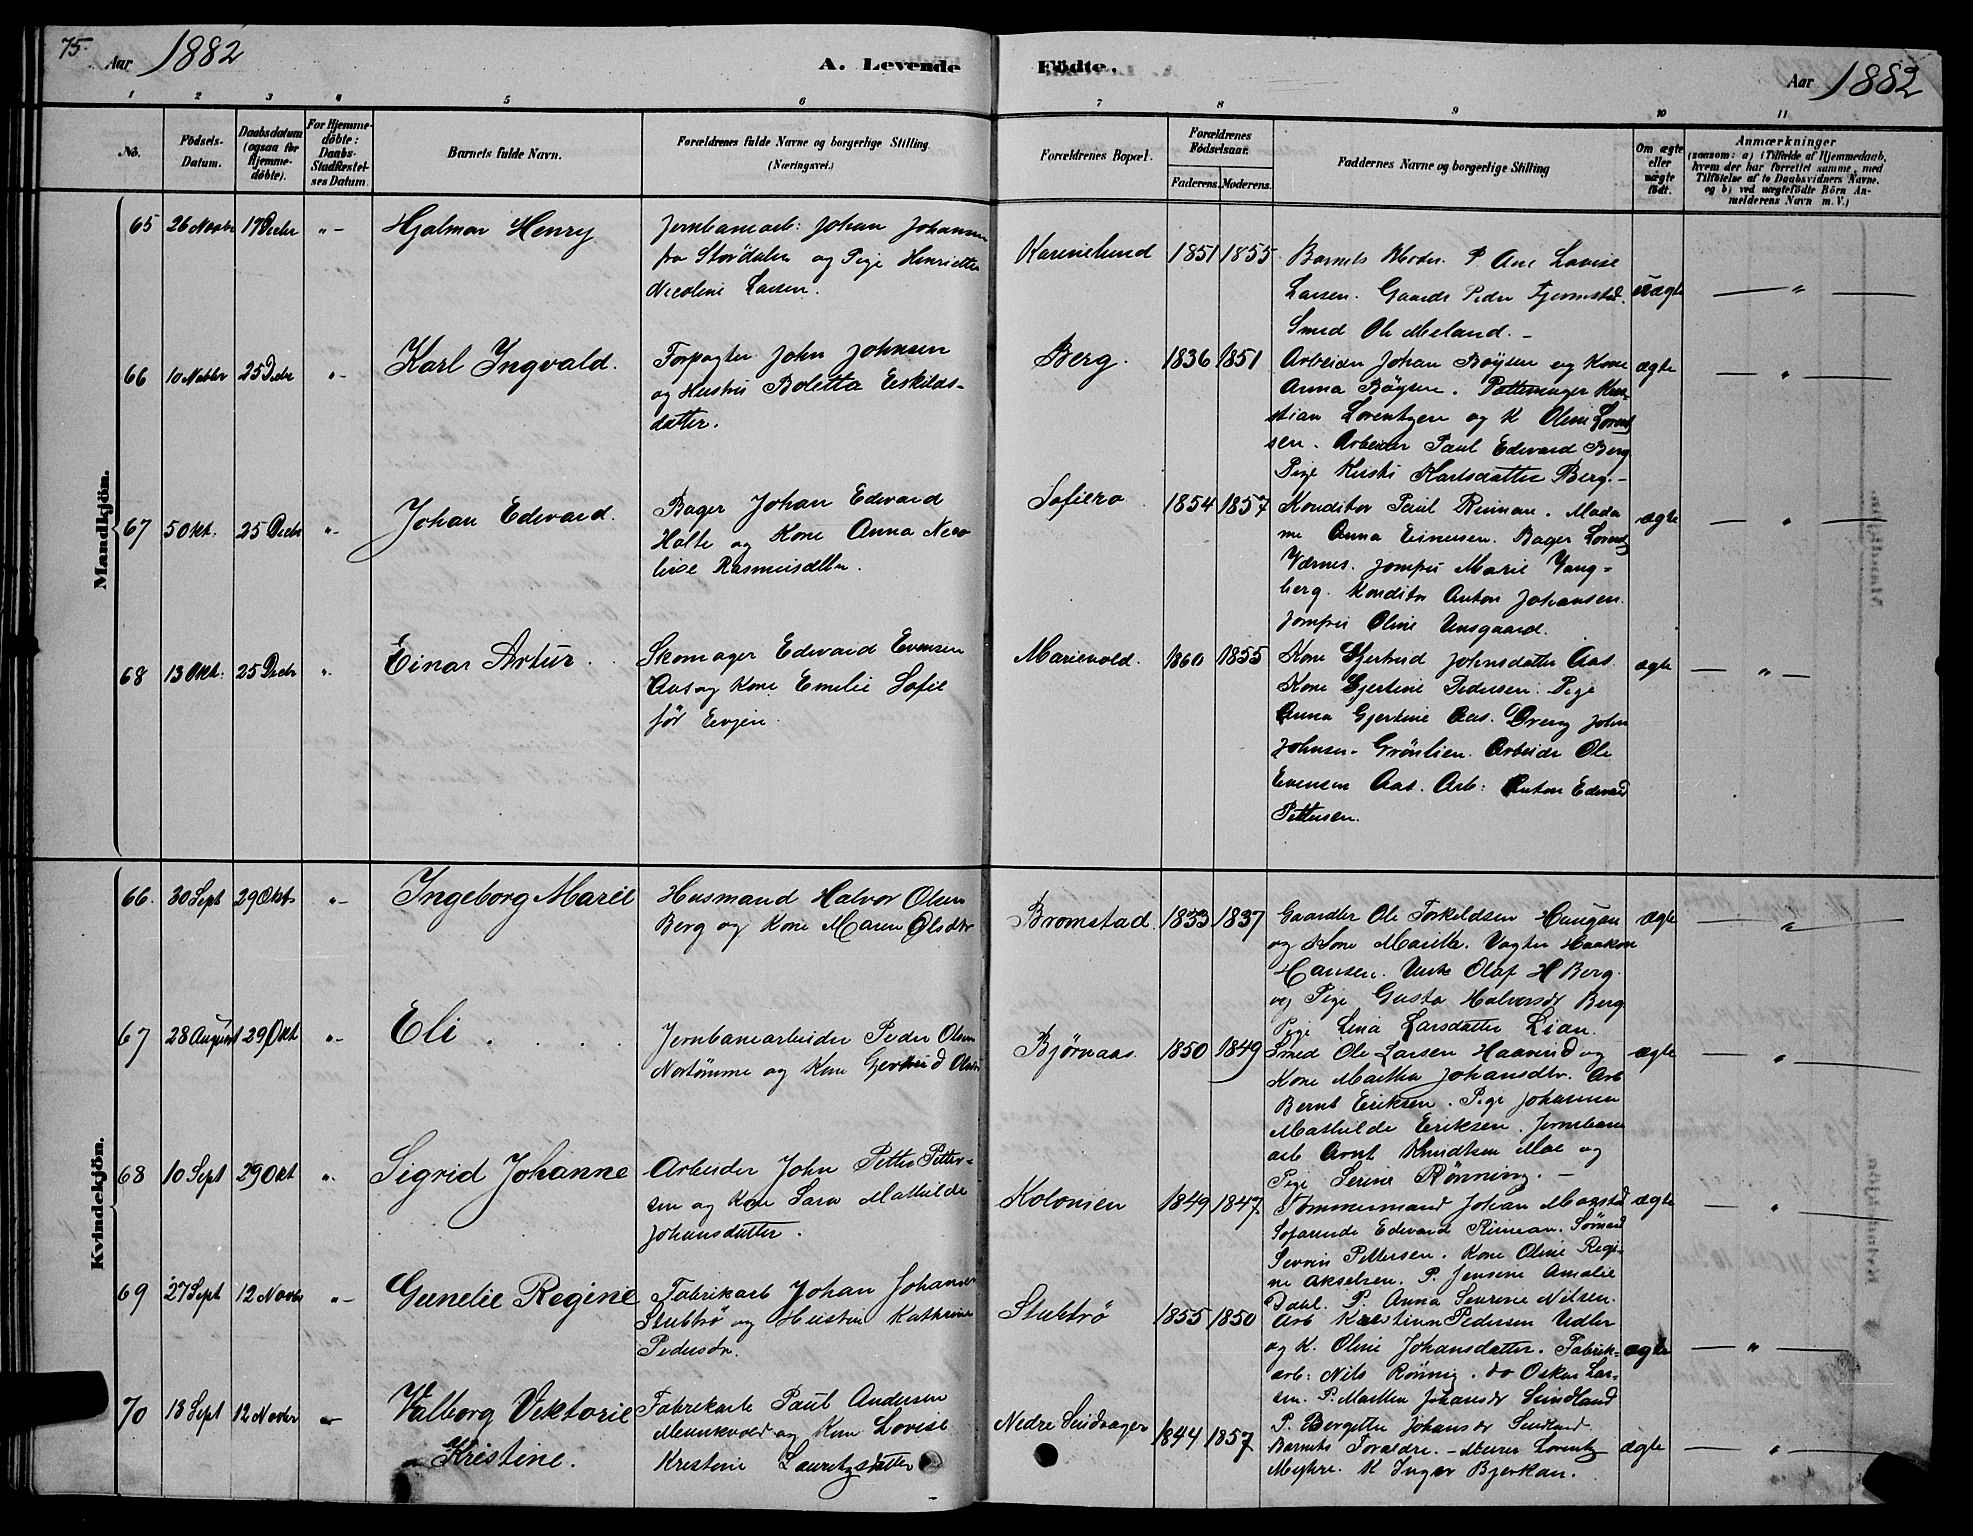 75.
Aar 1882
A. Levende Födte.
Aar 1882
1 2 3 4 5 6 7 8 9 10 11
No.
Födsels-Datum.
Daabsdatum (ogsaa for Hjemme-döbte).
For Hjemme-döbte: Daabs-Stadfæstel-ses Datum.
Barnets fulde Navn.
Forældrenes fulde Navne og borgerlige Stilling.
(Næringsvei.)
Forældrenes Bopæl.
Forældrenes Födselsaar.
Faderens. Moderens.
Faddernes Navne og borgerlige Stilling
Om ægte eller uægte födt.
Anmærkninger
(saasom: a) i Tilfælde af Hjemmedaab,
hvem der har forrettet samme, med
Tilföielse af to Daabsvidners Navne,
og b) ved uægtefödte Börn An-
melderens Navn m. V.)
Mandkjön.
65 26 Novbr 17 Decbr "-
Hjalmar Henry
Jernbanearb: Johan Johansen
fra Stördalen og Pige Henriette
Nicoline Larsen.
Karenslund 1851 1855
Barnets Moder. P. Ane Lovise
Larsen. Gaardb Peder Fjermstad.
Smed Ole Meland. -
uægte
66 10 Novbr 25 Decbr "-
Karl Ingvald.
Forpagter John Johnsen
og Hustru Boletta Eskilds-
datter.
Berg. 1836 1851
Arbeider Johan Böysen og Kone
Anna Böysen. Pottemager Kri-
stian Lorentzen og K Oline Lorent
sen. Arbeider Paul Edvard Berg
Pige Kirsti Karlsdatter Berg. -
ægte
67 5 Okt. 25 Decbr "-
Johan Edvard.
Bager Johan Edvard
Holte og Kone Anna Nico
line Rasmusdtter.
Sofiero 1854 1857
Konditor Paul Rinnan. Mada
me Anna Einersen. Bager Lorentz
Værnes. Jomfru Marie Vang-
berg. Konditor Anton Johansen.
Jomfru Oline Unsgaard.
ægte
68 13 Okt: 25 Decbr "
Einar Artur.
Skomager Edvard Evensen
Aas og Kone Emelie Sofie
för Evjen.
Marievold. 1860 1855
Kone Gjertrud Johnsdatter Aas.
Kone Gjertine Pedersen. Pige
Anna Gjertine Aas. Dreng John
Johnsen. Grönlien. Arbeider Ole
Evensen Aas. Arb: Anton Edvard
Pettersen.
ægte
Kvindekjön.
66. 30 Sept 29 Okt "-
Ingeborg Marie
Husmand Halvor Olsen
Berg og Kone Maren Olsdtr
Bromstad. 1833 1837
Gaardbr Ole Torkildsen Haugan
og Kone Marith. Vogter Haakon
Hansen. Unk Olaf H Berg.
og Pige Gusta Halvorsdr Berg
Pige Lina Larsdatter Lian.
ægte
67 28 August 29 Okt "-
Eli
Jernbanearbeider Peder Olsen
Nortömme og Kone Gertrud Olsdr
Bjørnaas. 1850 1849
Smed Ole Larsen Haaverud og
Kone Martha Johansdtr. Arb
Bernt Eriksen. Pige Johanna
Mathilde Eriksen. Jernbane
arb Arnt Knudtsen Moe og
Pige Serine Rønning. -
ægte
68 10 Sept 29 Okt "
Sigrid Johanne
Arbeider John Petter Petter-
sen og Kone Sara Mathilde
Johansdatter.
Kolonien 1849 1847
Tømmermand Johan Mogstad
Sofarende Edvard Rinnan. Sömand
Severin Pettersen. Kone Oline Regi-
ne Akselsen. P. Jensine Amalie
Dahl. P. Anna Severine Nilsen.
ægte
69 27 Sept 12 Novbr "-
Gunelie Regine
Fabrikarb Johan Johans
Stubbrø og Hustru Kathrine
Pedersdr.
Stubbrø 1855 1850
Arb Kristian Pedersen Udler
og K. Oline Johansdatter. Fabrik-
arb: Nils Rönnig. do Oskar Lar-
sen. P. Marthea Johansdr Sundland
P. Bergitte Johansdr Sundland
ægte
70 13 Sept 12 Novbr
Valborg Viktorie
Kristine.
Fabrikarb Paul Andersen
Munkvold og Kone Lovise
Kristine Lauritzsdatter
Nedre Sundsager 1844 1857
Barnets Foraldre. - Murer Lorentz
Myhre. K Inger Bjerkan.
ægte